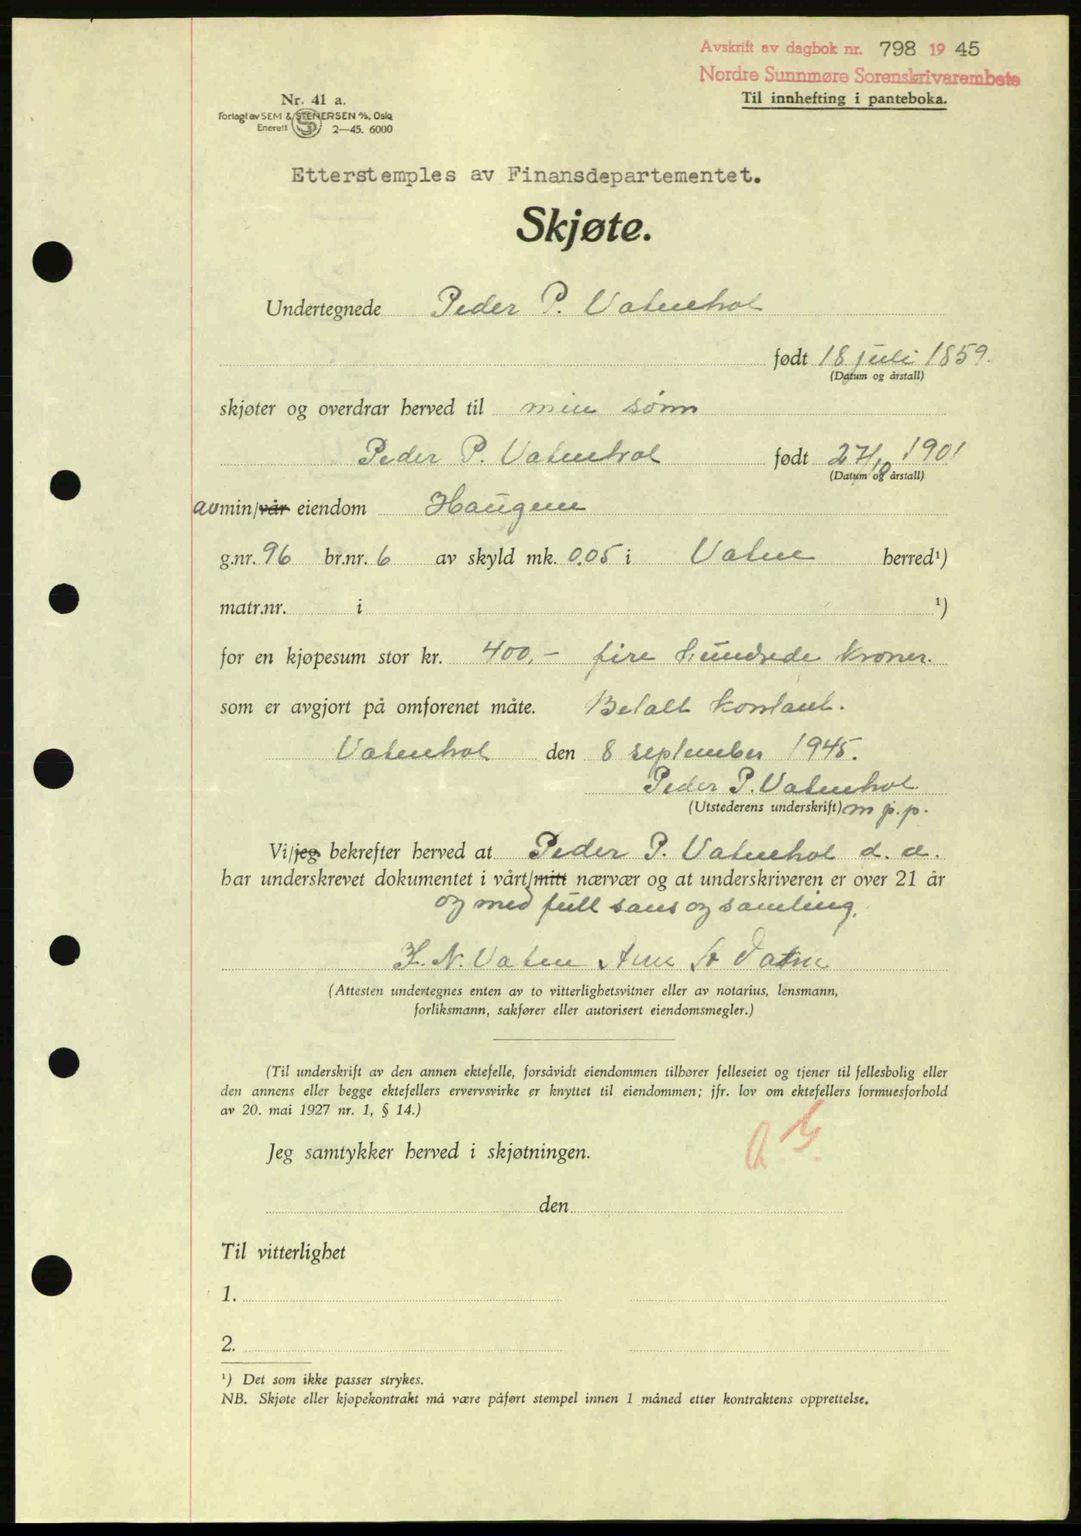 Avskrift av dagbok nr. 798 1945
Nordre Sunnmøre Sorenskrivarembete
Til innhefting i panteboka.
Nr. 41 a.
Forlagt av SEM & STENERSEN A/S, Oslo
Enerett 2—45. 6000
Etterstemples av Finansdepartementet.
Skjøte.
Undertegnede Peder P. Vatnehol
født 18 juli 1859.
(Datum og årstall)
skjøter og overdrar herved til min sønn
Peder P. Vatnehol født 27/10 1901
(Datum og årstall)
av min/vår eiendom Haugene
g.nr. 96 br.nr. 6 av skyld mk. 0.05 i Vatne herred¹)
matr.nr. i ¹)
for en kjøpesum stor kr. 400,- fire hundrede kroner.
som er avgjort på omforenet måte. Betalt kontant.
Vatnehol den 8 september 1945.
Peder P. Vatnehol
(Utstederens underskrift) m p.p.
Vi/jeg bekrefter herved at Peder P. Vatnehol d. e.
har underskrevet dokumentet i vårt/mitt nærvær og at underskriveren er over 21 år
og med full sans og samling.
K. N. Vatne Arne St Vatne
(Attesten undertegnes enten av to vitterlighetsvitner eller av notarius, lensmann,
forliksmann, sakfører eller autorisert eiendomsmegler.)
(Til underskrift av den annen ektefelle, forsåvidt eiendommen tilhører felleseiet og tjener til fellesbolig eller
den annens eller begge ektefellers ervervsvirke er knyttet til eiendommen; jfr. lov om ektefellers formuesforhold
av 20. mai 1927 nr. 1, § 14.)
Jeg samtykker herved i skjøtningen.
den
Til vitterlighet
1.
2.
¹) Det som ikke passer strykes.
NB. Skjøte eller kjøpekontrakt må være påført stempel innen 1 måned etter kontraktens opprettelse.